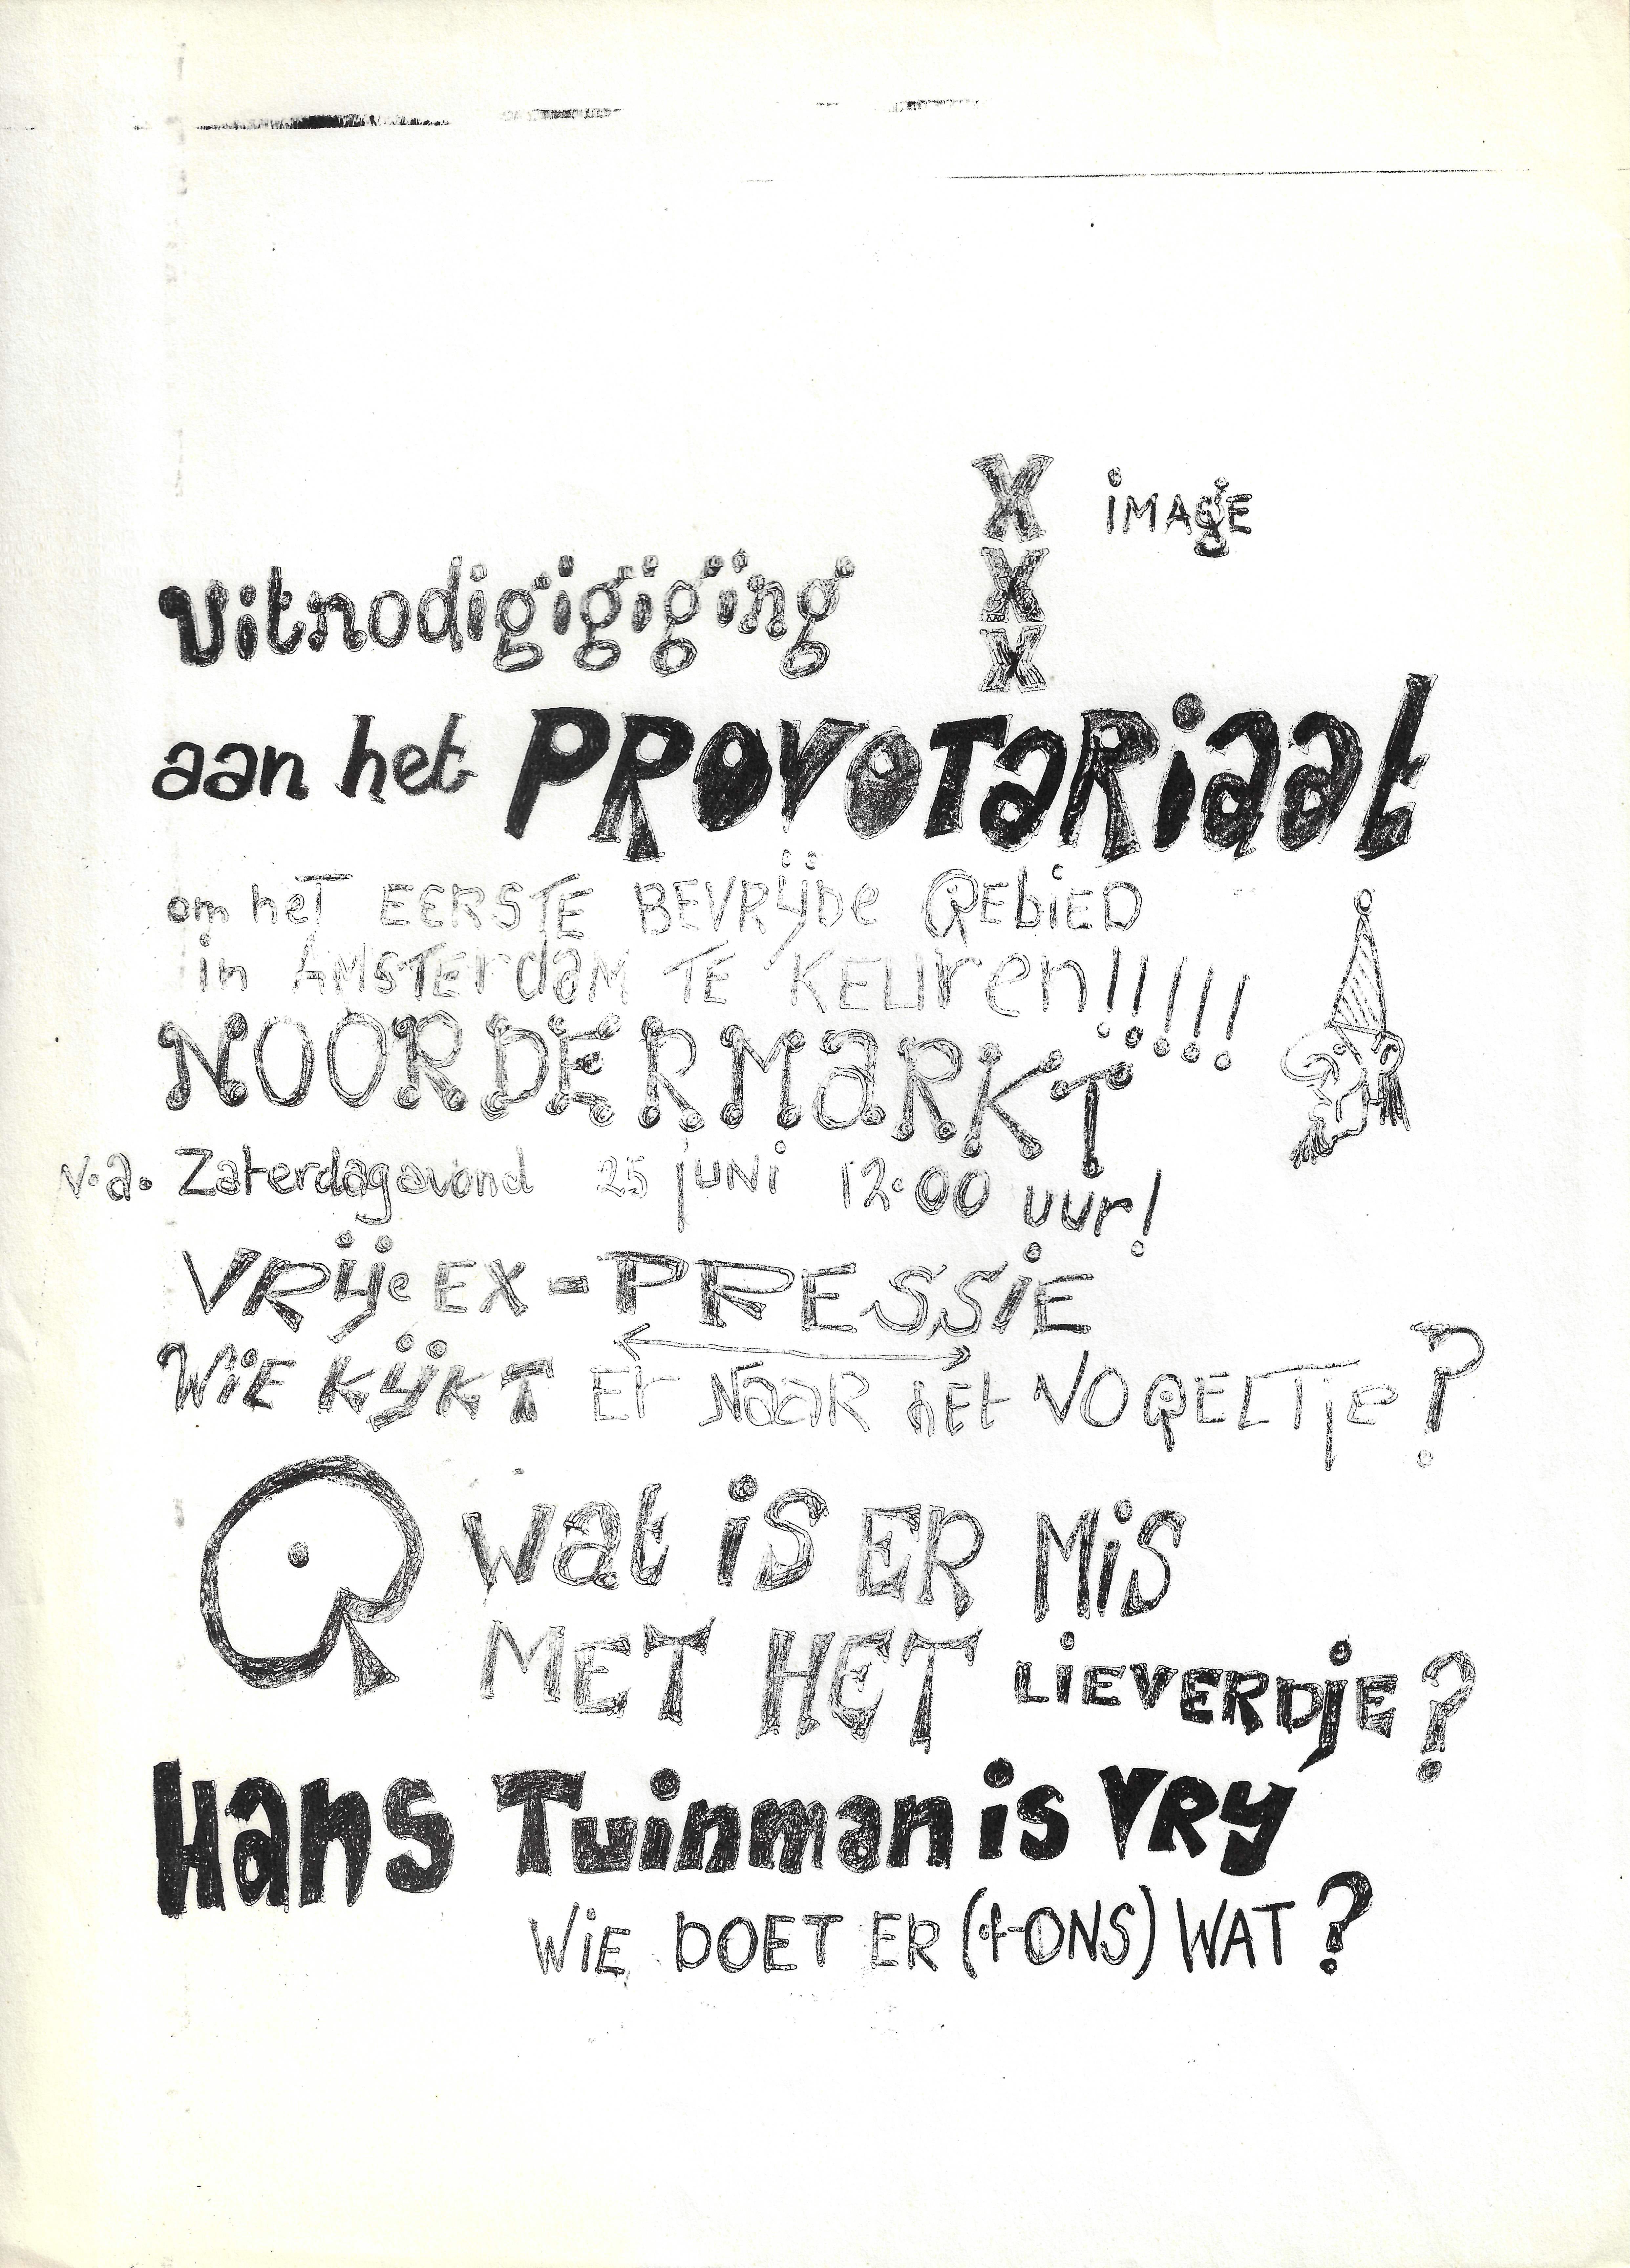 X iMAgE
X
X
Uitnodigigigiging
aan het PROVOTARiaat
om heT EERSTE BEVRijDe GEbiED
in AMSTErdaM TE KEUren!!!!!
NOORDERMaRKT
v.a. Zaterdagavond 25 juni 12.00 uur!
VRije EX-PRESSiE
WiE KijKT Er NaaR hEt VOGELTje?
wat is ER MiS
MET HET LiEVERDjE?
Hans Tuinman is VRy
WiE DOET ER (+ONS) WAT?